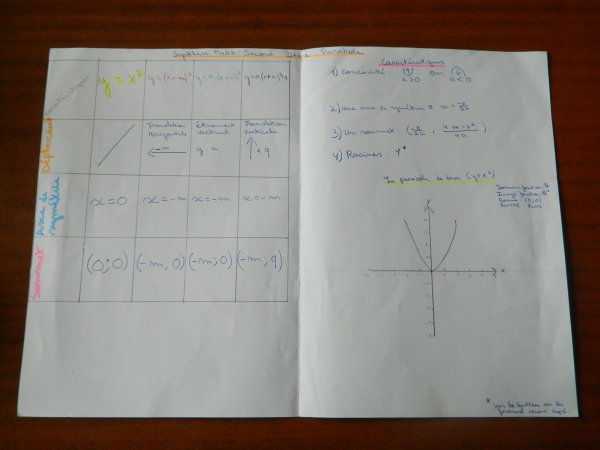 Synthèse Math: Second Degré Parabole
Caractéristiques
y = x²
y = (x+m)²
y = a(x+m)²
y = a(x+m)²+q
Déplacement
Translation Horizontale
← -m
Étirement Vertical
Translation Verticale
↑ +q
Axe de symétrie
x = 0
x = -m
x = -m
x = -m
Sommet
(0;0)
(-m; 0)
(-m; 0)
(-m; q)
Caractéristiques
1) Concavité:
a>0
ou
a<0
2) Une axe de symétrie ≡ x = -b/2a
3) Un sommet (-b/2a , 4ac-b²/4a)
4) Racines:
La parabole de base (y=x²)
Domaine fonction: R
Image fonction: R⁺
Racine: (0;0)
Parité: Paire
y
x
* Voir la synthèse sur les
fonctions second degré.